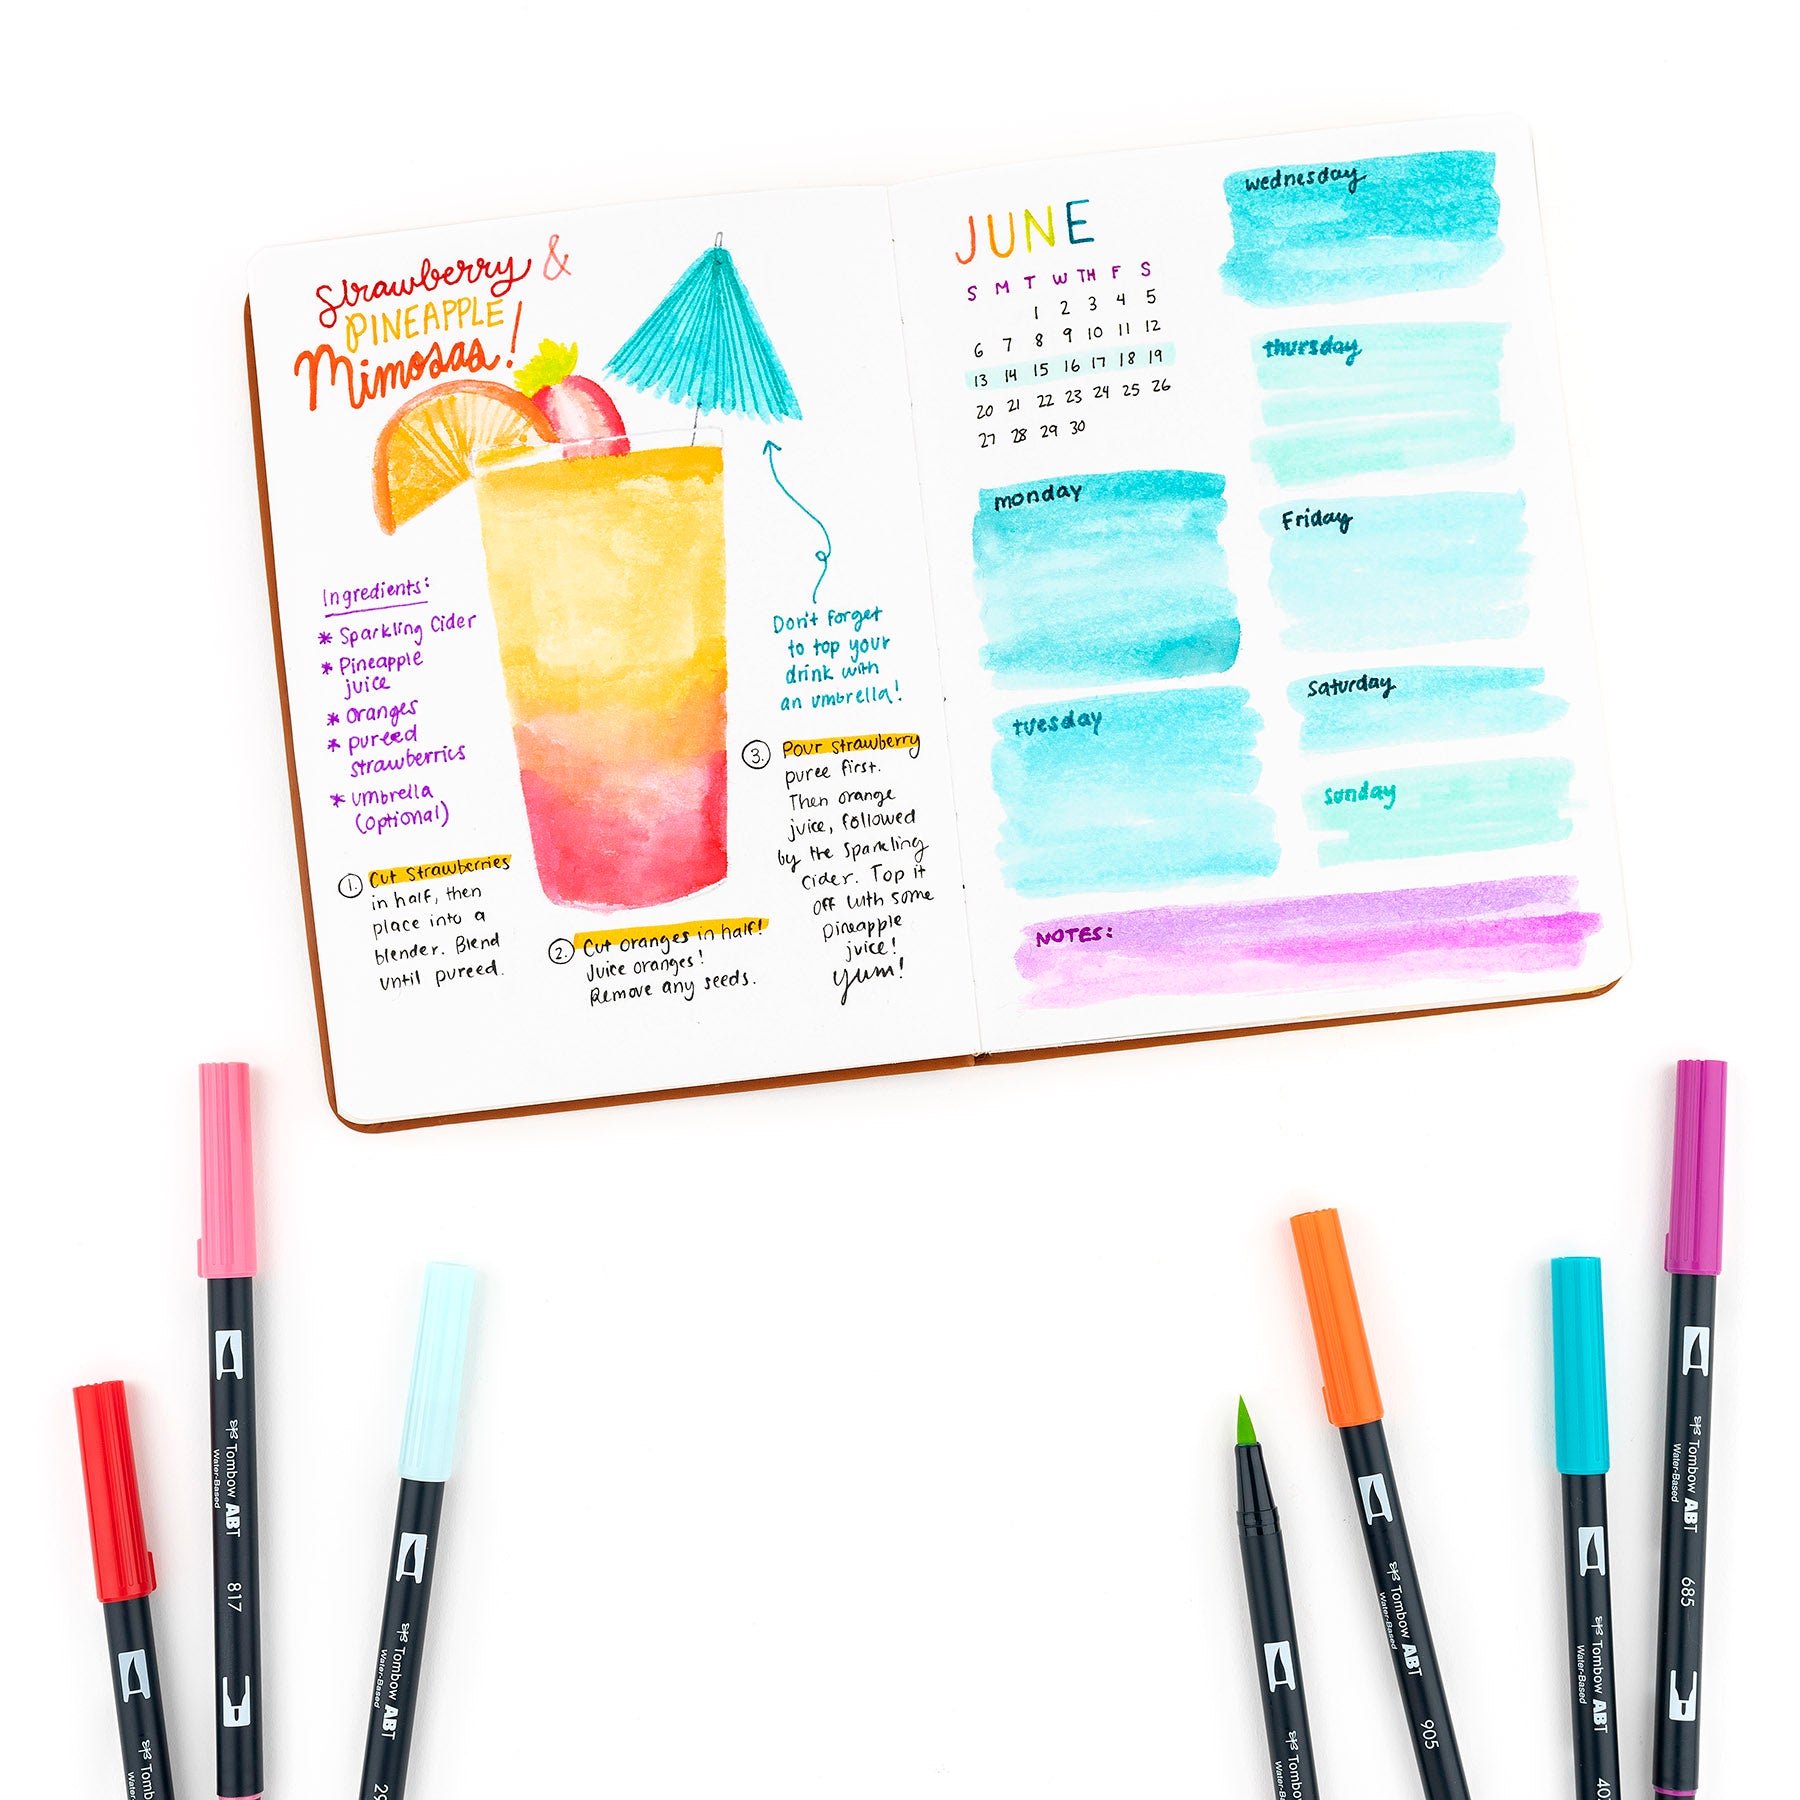 Strawberry &
PINEAPPLE
Mimosas!
Ingredients:
* Sparkling Cider
* Pineapple
juice
* oranges
* pureed
strawberries
* umbrella
(optional)
1. Cut Strawberries
in half, then
place into a
blender. Blend
until pureed.
2. Cut oranges in half!
Juice oranges!
Remove any seeds.
Don't forget
to top your
drink with
an umbrella!
3. Pour strawberry
puree first.
Then orange
juice, followed
by the sparkling
cider. Top it
off with some
pineapple
juice!
yum!
JUNE
S M T W TH F S
1 2 3 4 5
6 7 8 9 10 11 12
13 14 15 16 17 18 19
20 21 22 23 24 25 26
27 28 29 30
monday
tuesday
wednesday
thursday
Friday
saturday
sunday
NOTES:
Tombow ABT
Water-Based
817
Tombow ABT
Water-Based
Tombow ABT
Water-Based
905
Tombow ABT
Water-Based
Tombow ABT
Water-Based
685
Tombow
Water-Based
Tombow
Water-Based